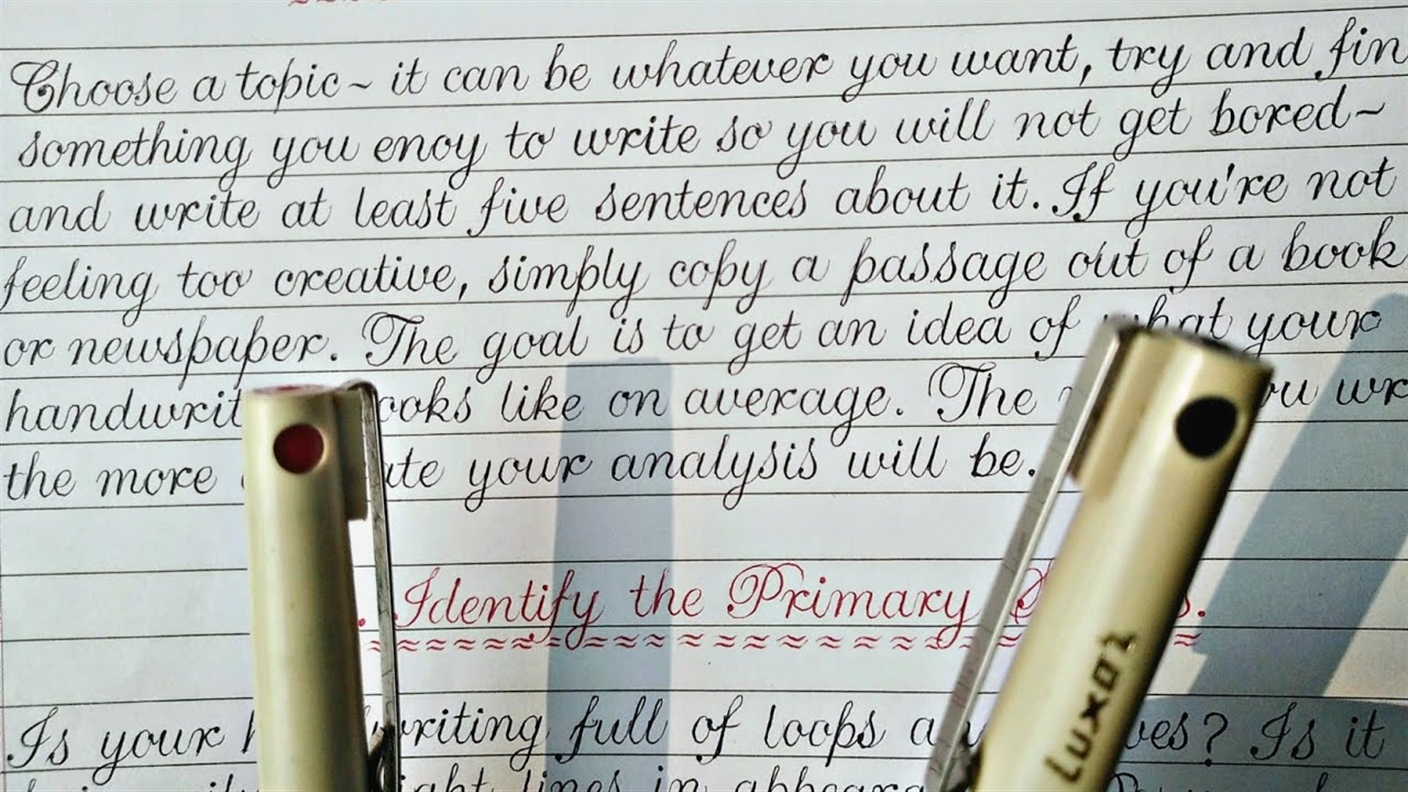 Choose a topic~ it can be whatever you want, try and fin
something you enoy to write so you will not get bored~
and write at least five sentences about it. If you're not
feeling too creative, simply copy a passage out of a book
or newspaper. The goal is to get an idea of what your
handwrit ooks like on average. The ou wr
the more ate your analysis will be.
. Identify the Primary S s.
Is your h writing full of loops a ves? Is it
ight lines in appeara
Luxor